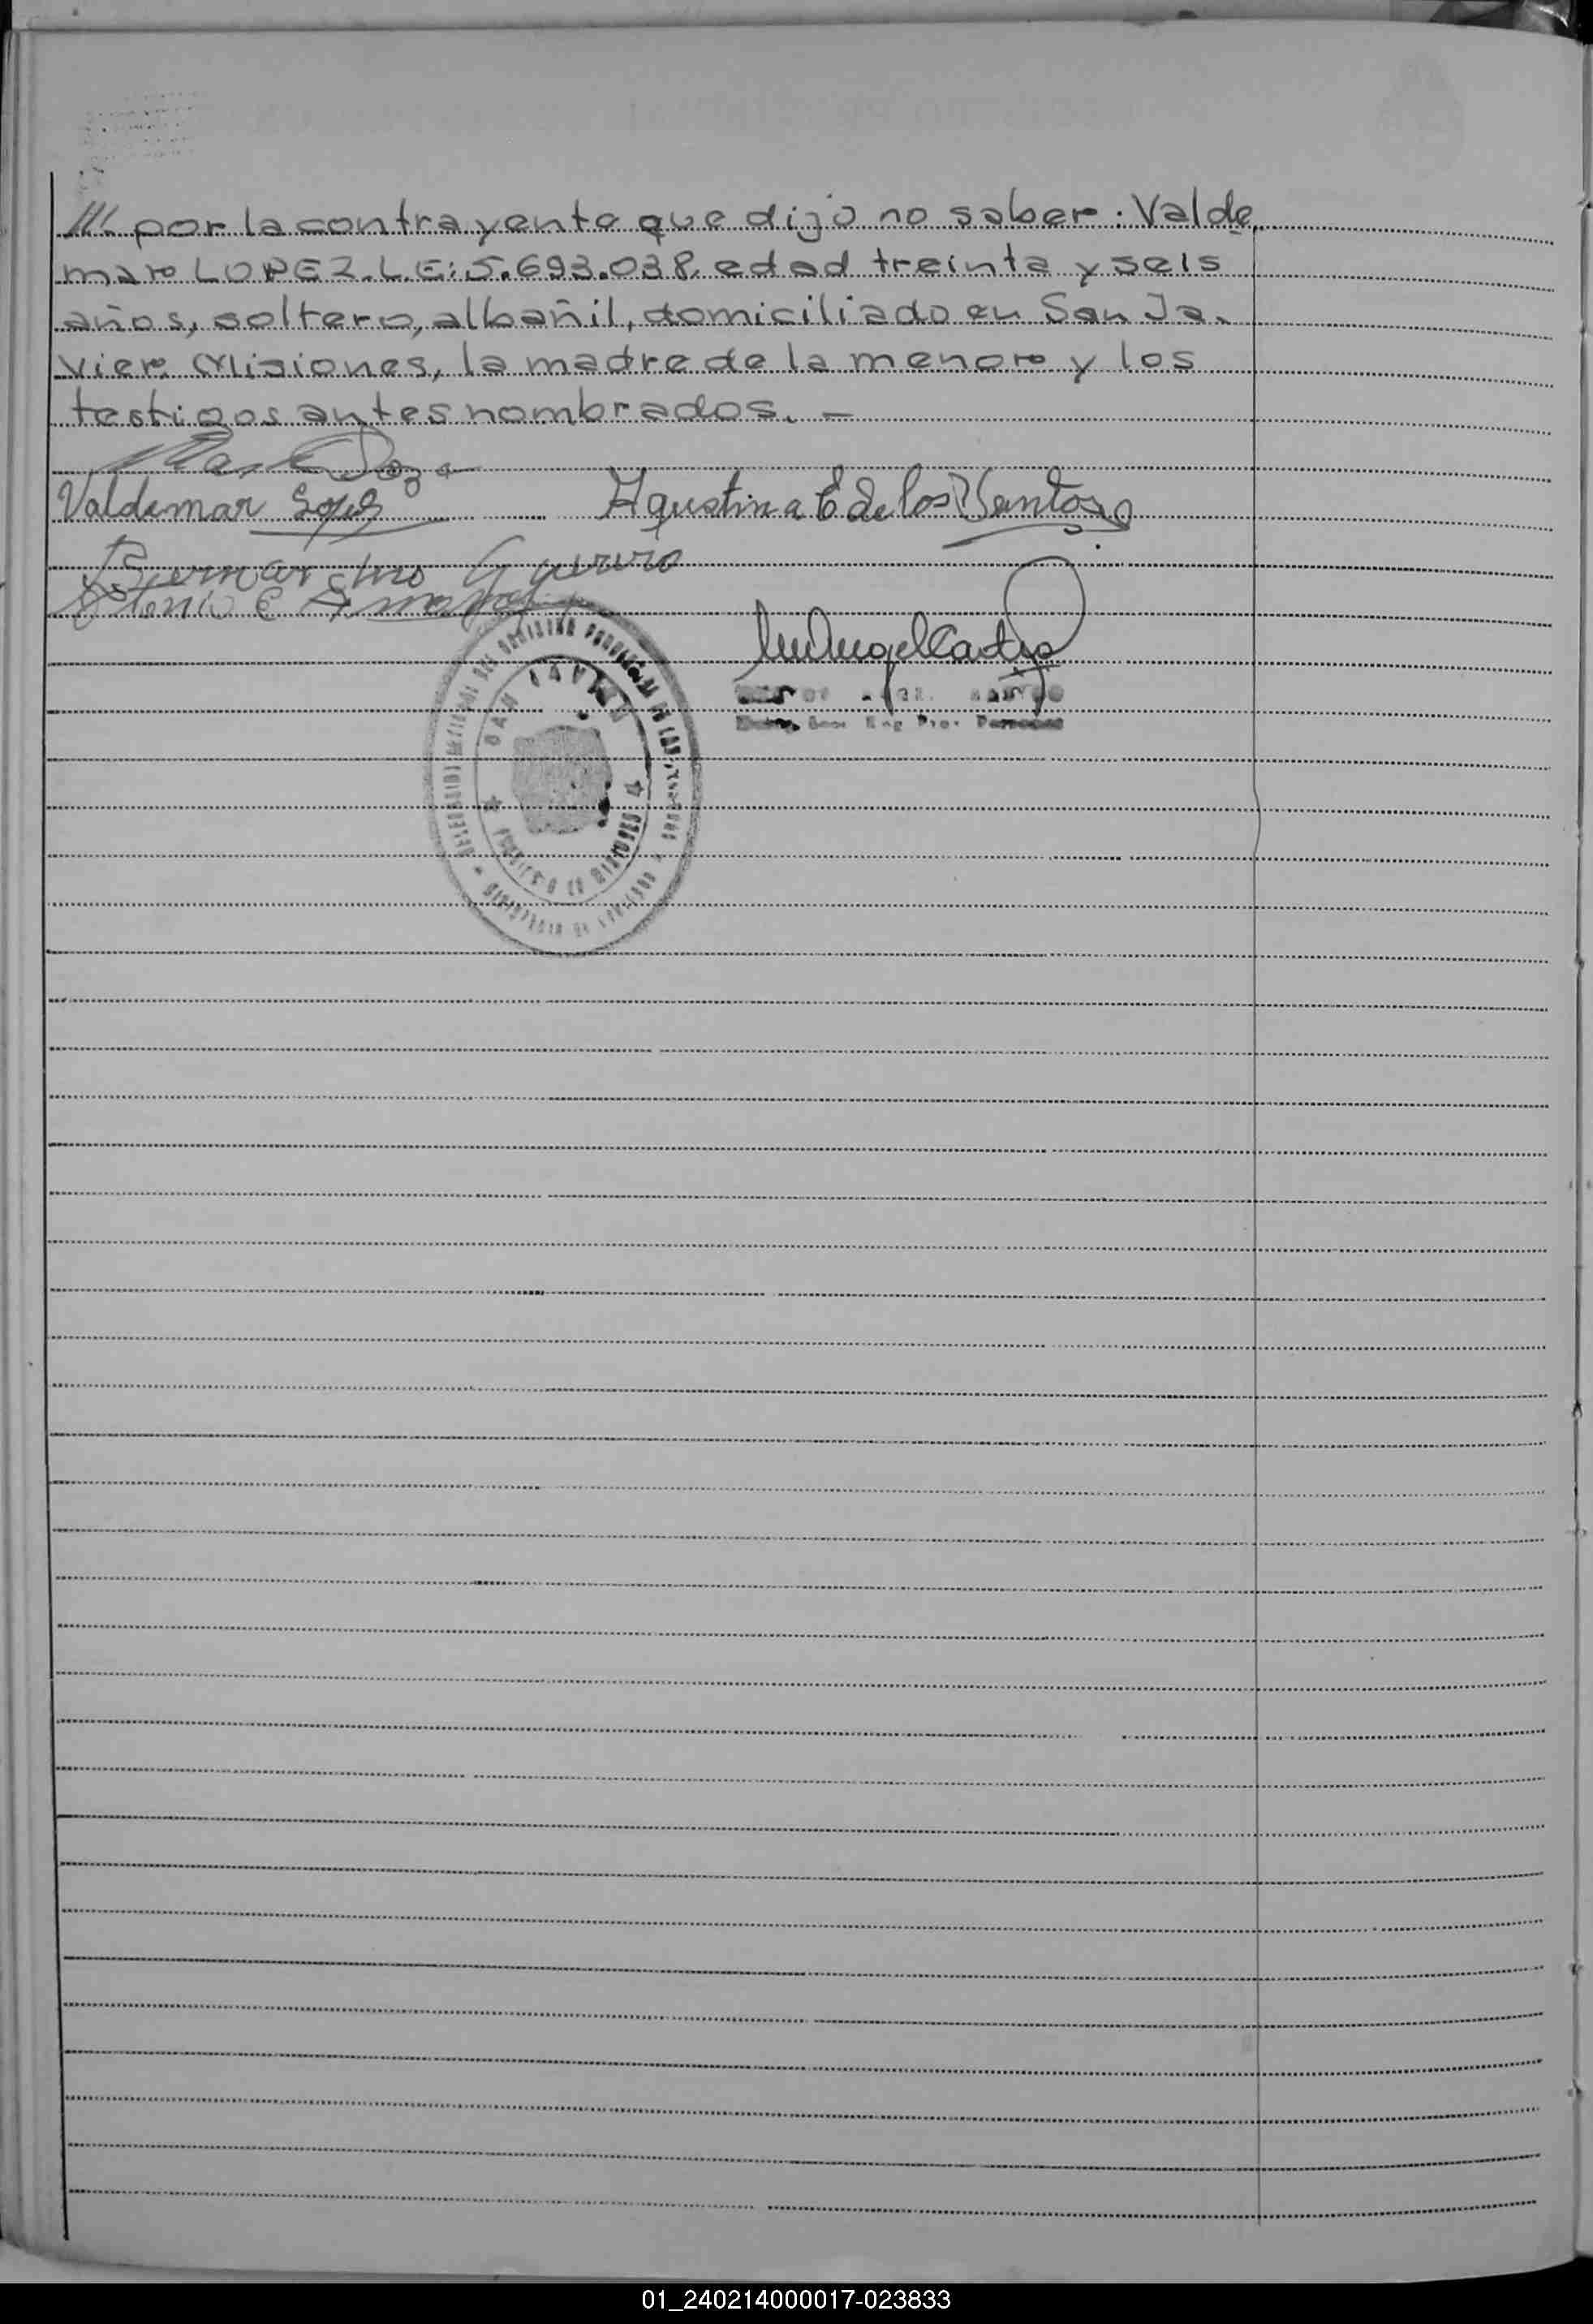 /// por la contrayente que dijo no saber: Valde
mar LOPEZ. L.E: 5.693.038, edad treinta y seis
años, soltero, albañil, domiciliado en San Ja-
vier, Misiones, la madre de la menor y los
testigos antes nombrados. -
Valdemar Lopez Agustina E de los Santos
Bernardino
Antonio E
SAN JAVIER
01_240214000017-023833